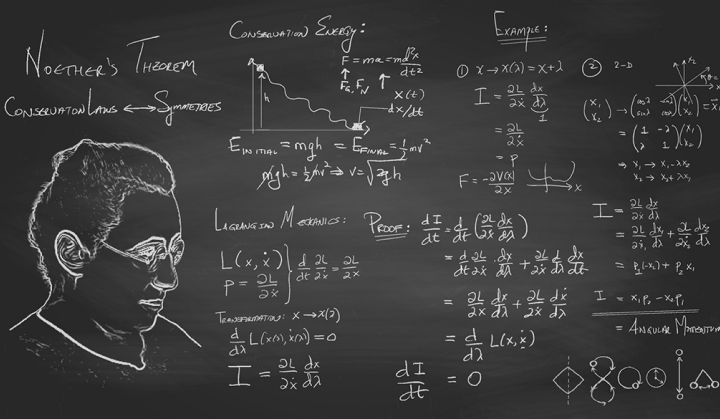 NOETHER'S THEOREM
CONSERVATION LAWS ⟷ SYMMETRIES
CONSERVATION ENERGY:
F = ma = m d²x/dt²
F_G, F_N
h
x(t)
dx/dt
E_INITIAL = mgh = E_FINAL = ½mv²
mgh = ½mv² ⇒ v = √2gh
LAGRANGIAN MECHANICS:
L(x, ẋ)
p = ∂L/∂ẋ
d/dt ∂L/∂ẋ = ∂L/∂x
TRANSFORMATION: x → x(λ)
d/dλ L(x(λ), ẋ(λ)) = 0
I = ∂L/∂ẋ dx/dλ
PROOF: dI/dt = d/dt (∂L/∂ẋ dx/dλ)
= d/dt ∂L/∂ẋ dx/dλ + ∂L/∂ẋ d/dλ dx/dt
= ∂L/∂x dx/dλ + ∂L/∂ẋ dẋ/dλ
= d/dλ L(x, ẋ)
dI/dt = 0
EXAMPLE:
① x → x(λ) = x + λ
I = ∂L/∂ẋ dx/dλ
1
= ∂L/∂ẋ
= p
F = -∂V(x)/∂x
x
② 2-D
x₂
x₁
= (1 -λ λ 1)(x₁ x₂)
⇒ x₁ → x₁ - λx₂
x₂ → x₂ + λx₁
I = ∂L/∂ẋ dx/dλ
= ∂L/∂ẋ₁ dx₁/dλ + ∂L/∂ẋ₂ dx₂/dλ
= p₁(-x₂) + p₂x₁
I = x₁p₂ - x₂p₁
= ANGULAR MOMENTUM